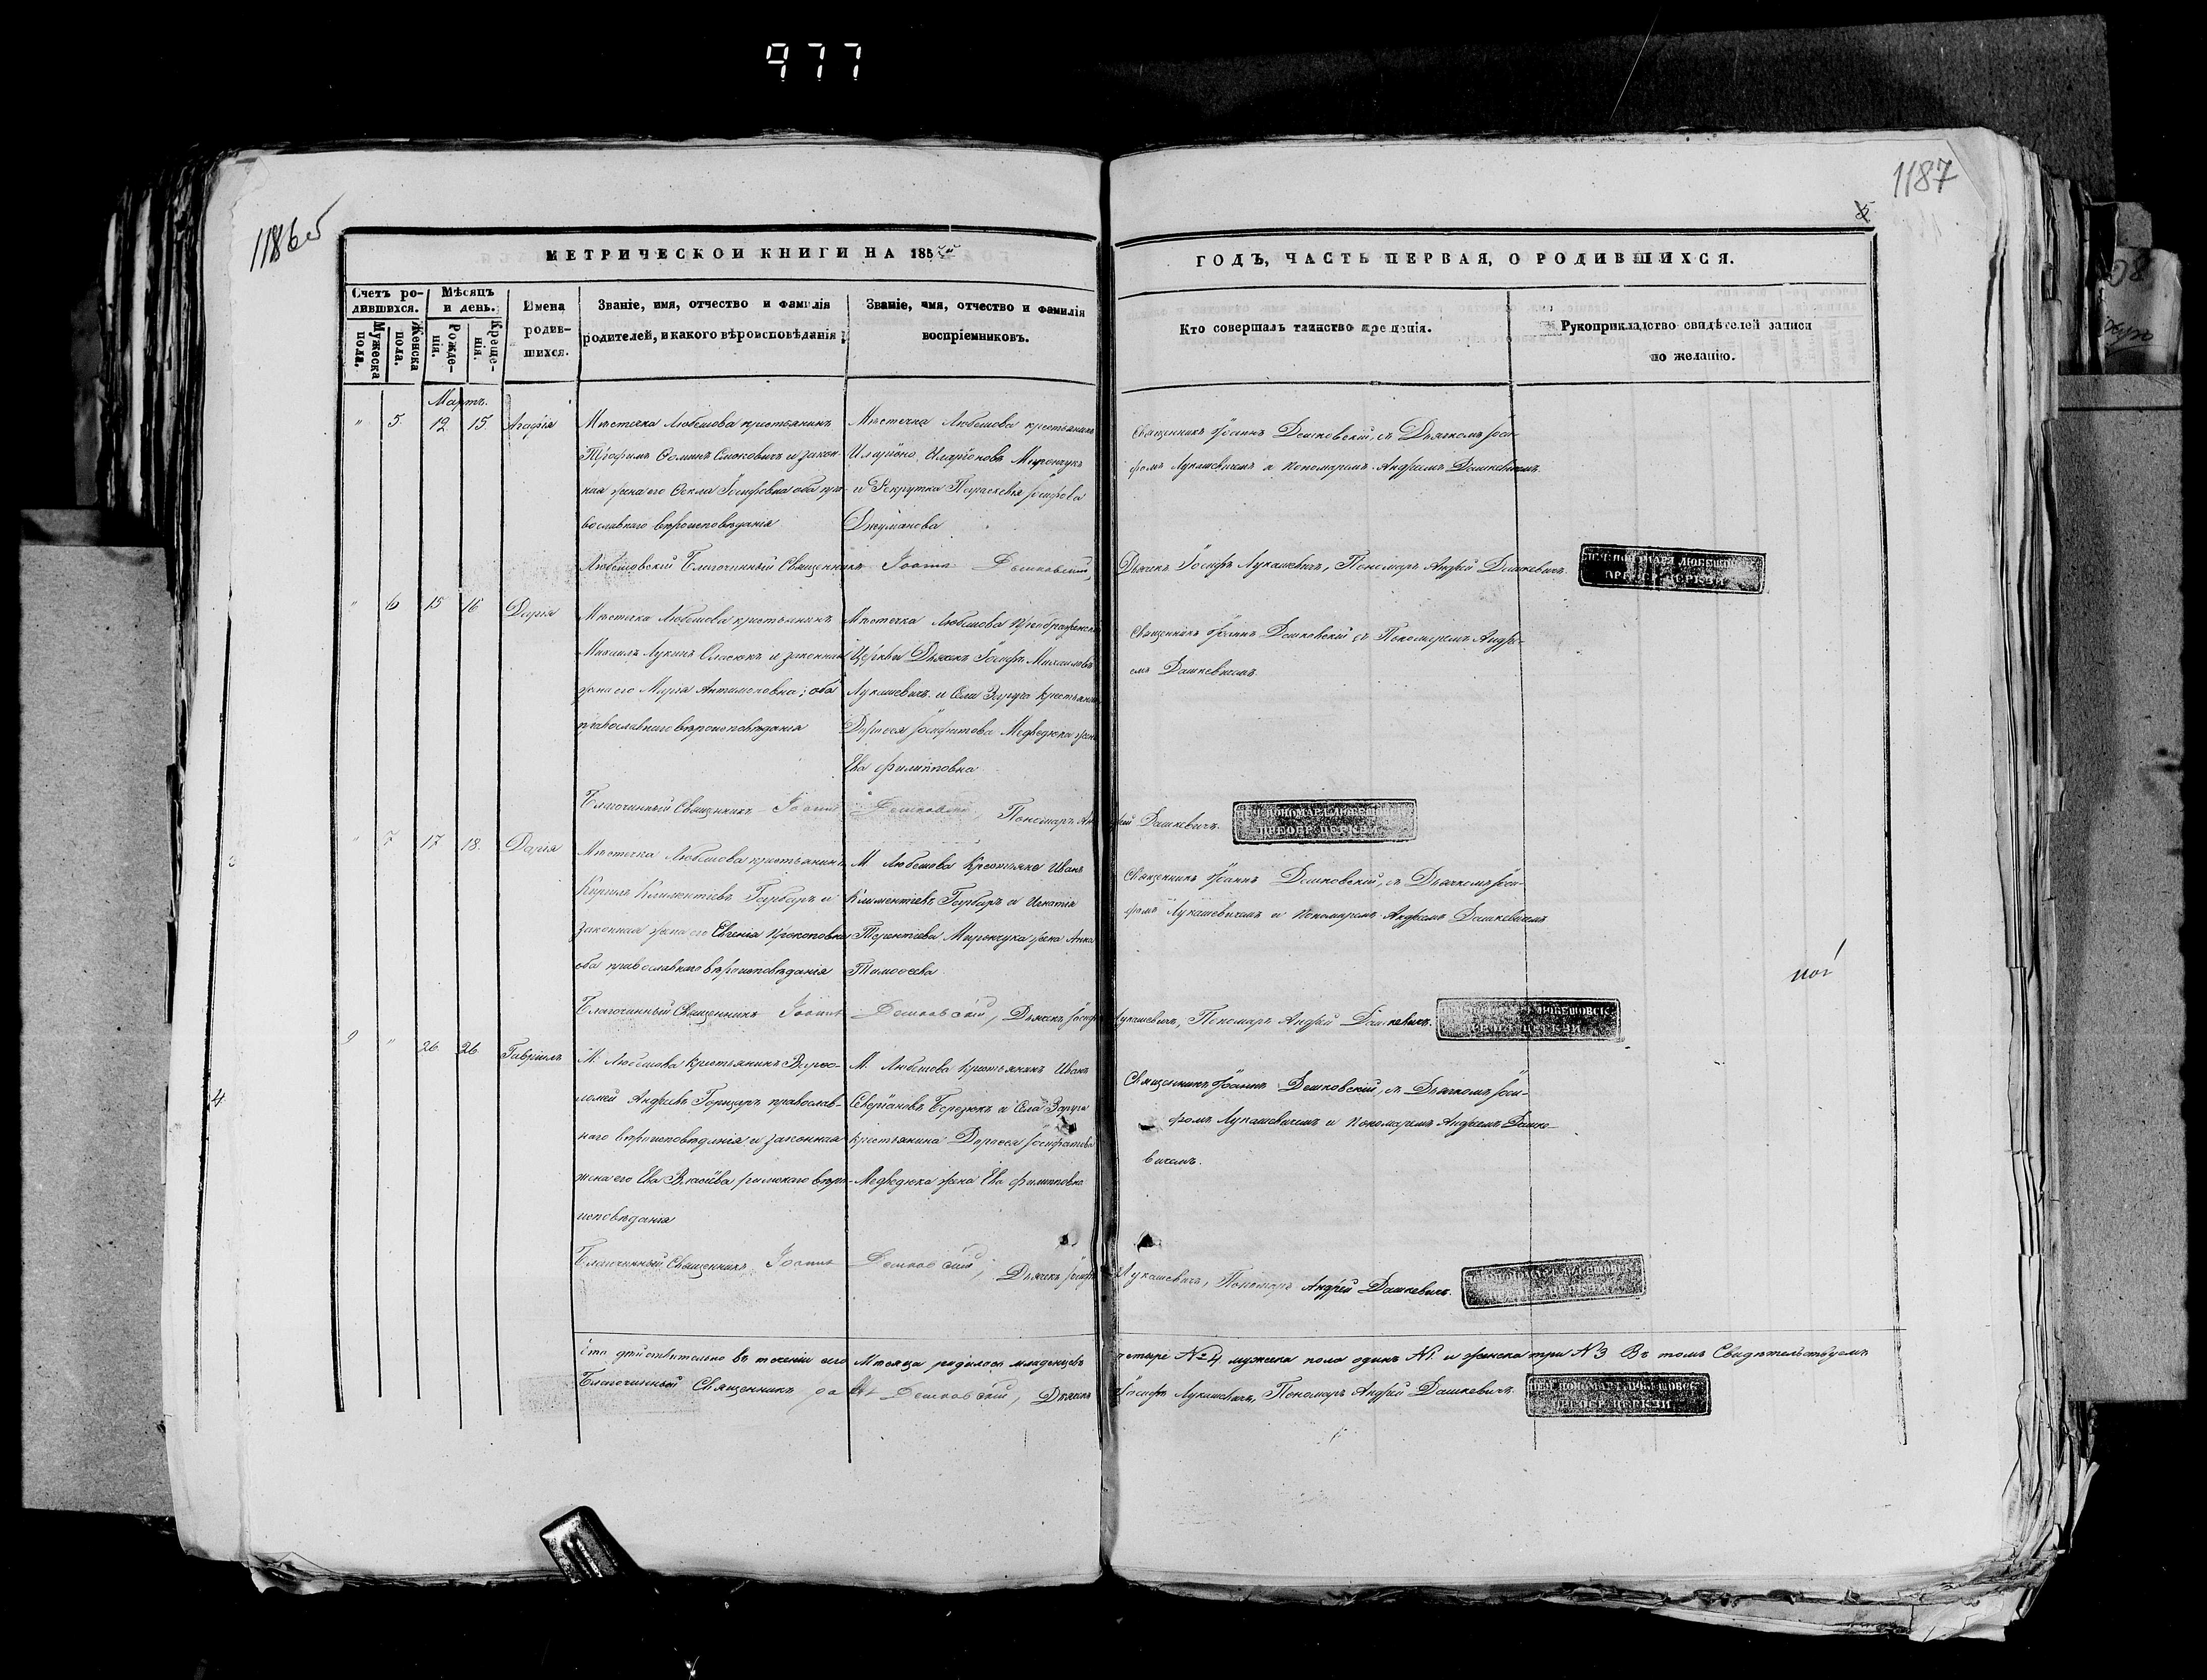 977
1186 об
1187
5
МЕТРИЧЕСКОЙ КНИГИ НА 185
ГОДЪ, ЧАСТЬ ПЕРВАЯ, О РОДИВШИХСЯ.
Счетъ родившихся.
Мужеска пола.
Женска пола.
Мѣсяцъ и день.
Рожденія.
Крещенія.
Имена родившихся.
Званіе, имя, отчество и фамилія
родителей, и какого вѣроисповѣданія
Званіе, имя, отчество и фамилія
воспріемниковъ.
Кто совершалъ таинство крещенія.
Рукоприкладство свидѣтелей записи
по желанію.
Мартъ.
" 5. 12 15. Агафія
Мѣстечка Любешова крестьянинъ
Трофимъ Ѳоминъ и закон-
ная жена его Ѳекла Іосифовна оба пра-
вославнаго вѣроисповѣданія
Мѣстечка Любешова крестьянинъ
Иларіонъ Иларіоновъ Мирончукъ
и Рекрутка Параскевія Іосифова
Джуманова
Священникъ Іоаннъ Дешковскій, съ Дьячкомъ Іоси-
фомъ Лукашевичемъ и пономаремъ Андреемъ Дашкевичемъ
Любешовскій Благочинный Священникъ Іоаннъ Дешковскій, Дьячекъ Іосифъ Лукашевичъ, Пономарь Андрей Дашкевичъ.
ПЕЧ. ПОНОМАРЯ ЛЮБЕШОВСК
ПРЕОБР. ЦЕРКВИ
" 6 15 16 Дарія
Мѣстечка Любешова крестьянинъ
Михаилъ Лукинъ Сласюкъ и законная
жена его Марія Антимоновна; оба
православнаго вѣроисповѣданія
Мѣстечка Любешова Преображенской
Церкви Дьячекъ Іосифъ Михаиловъ
Лукашевичъ и Села Заруга крестьянина
Дороѳея Іосифатова Медведюка жена
Ева Филипповна
Священникъ Іоаннъ Дешковскій съ Пономаремъ Андре-
емъ Дашкевичемъ.
Благочинный Священникъ Іоаннъ Дешковскій, Пономарь Андрей Дашкевичъ.
ПЕЧ. ПОНОМАРЯ ЛЮБЕШОВСК
ПРЕОБР. ЦЕРКВИ
3
" 7 17 18. Дарія
Мѣстечка Любешова крестьянинъ
Кирилъ Климентіевъ Гарбаръ и
законная жена его Евгенія Прокоповна
оба православнаго вѣроисповѣданія
М. Любешова Крестьяне Иванъ
Климентіевъ Гарбаръ и Игнатія
Терентіева Мирончука жена Анна
Тимоѳеева
Священникъ Іоаннъ Дешковскій, съ Дьячкомъ Іоси-
фомъ Лукашевичемъ и пономаремъ Андреемъ Дашкевичемъ
Благочинный Священникъ Іоаннъ Дешковскій, Дьячекъ Іосифъ Лукашевичъ, Пономарь Андрей Дашкевичъ.
ПЕЧ. ПОНОМАРЯ ЛЮБЕШОВСК
ПРЕОБР. ЦЕРКВИ
4
" 26. 26. Гавріилъ
М. Любешова крестьянинъ Варѳо-
ломей Андреевъ Гончаръ православ-
наго вѣроисповѣданія и законная
жена его Ева римскаго вѣро-
исповѣданія
М. Любешова крестьянинъ Иванъ
Северіановъ Березюкъ и Села Заруга
крестьянина Дороѳея Іосифатова
Медведюка жена Ева Филипповна
Священникъ Іоаннъ Дешковскій, съ Дьячкомъ Іоси-
фомъ Лукашевичемъ и пономаремъ Андреемъ Дашке-
вичемъ.
Благочинный Священникъ Іоаннъ Дешковскій, Дьячекъ Іосифъ Лукашевичъ, Пономарь Андрей Дашкевичъ.
ПЕЧ. ПОНОМАРЯ ЛЮБЕШОВСК
ПРЕОБР. ЦЕРКВИ
Что действительно въ теченіи сего Мѣсяца родилось младенцевъ четыре №4 мужеска пола одинъ №1 и женска три №3 Въ томъ Свидѣтельствуемъ
Благочинный Священникъ Іоаннъ Дешковскій, Дьячекъ Іосифъ Лукашевичъ, Пономарь Андрей Дашкевичъ.
ПЕЧ. ПОНОМАРЯ ЛЮБЕШОВСК
ПРЕОБР. ЦЕРКВИ